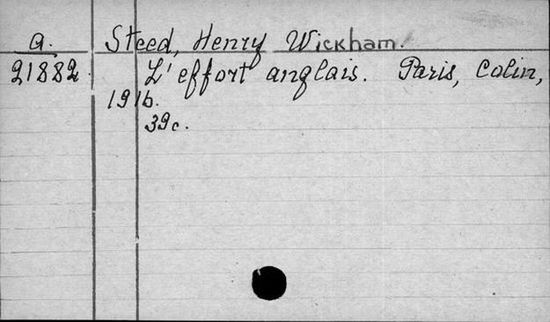 a. Steed, Henry Wickham.
21882. L'effort anglais. Paris, Colin,
1916.
39c.